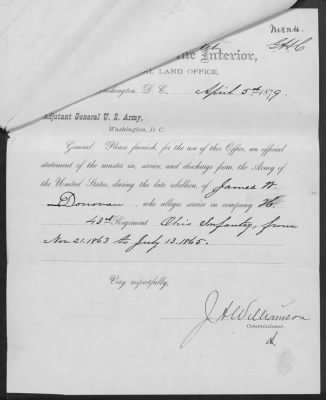 Menu.
the Interior,
LAND OFFICE,
Washington, D. C., April 5th 1879.
Adjutant General U. S. Army,
Washington, D. C.
General: Please furnish for the use of this Office, an official
statement of the muster in, service, and discharge from the Army of
the United States, during the late rebellion, of James W.
Donovan, who alleges service in company H.
43rd Regiment Ohio Infantry, from
Nov 21. 1863 to July 13. 1865.
Very respectfully,
J A Williamson
Commissioner.